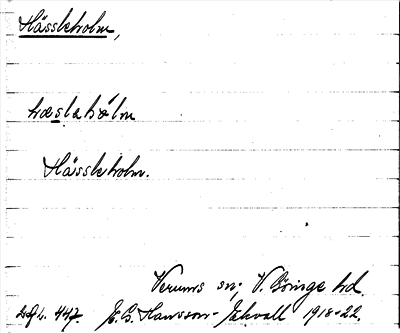 Hässleholm,
hæslahòlm
Hässleholm.
Verums sn; V. Göinge hd.
447. E. G. Hansson-Jakvall 1918-22.